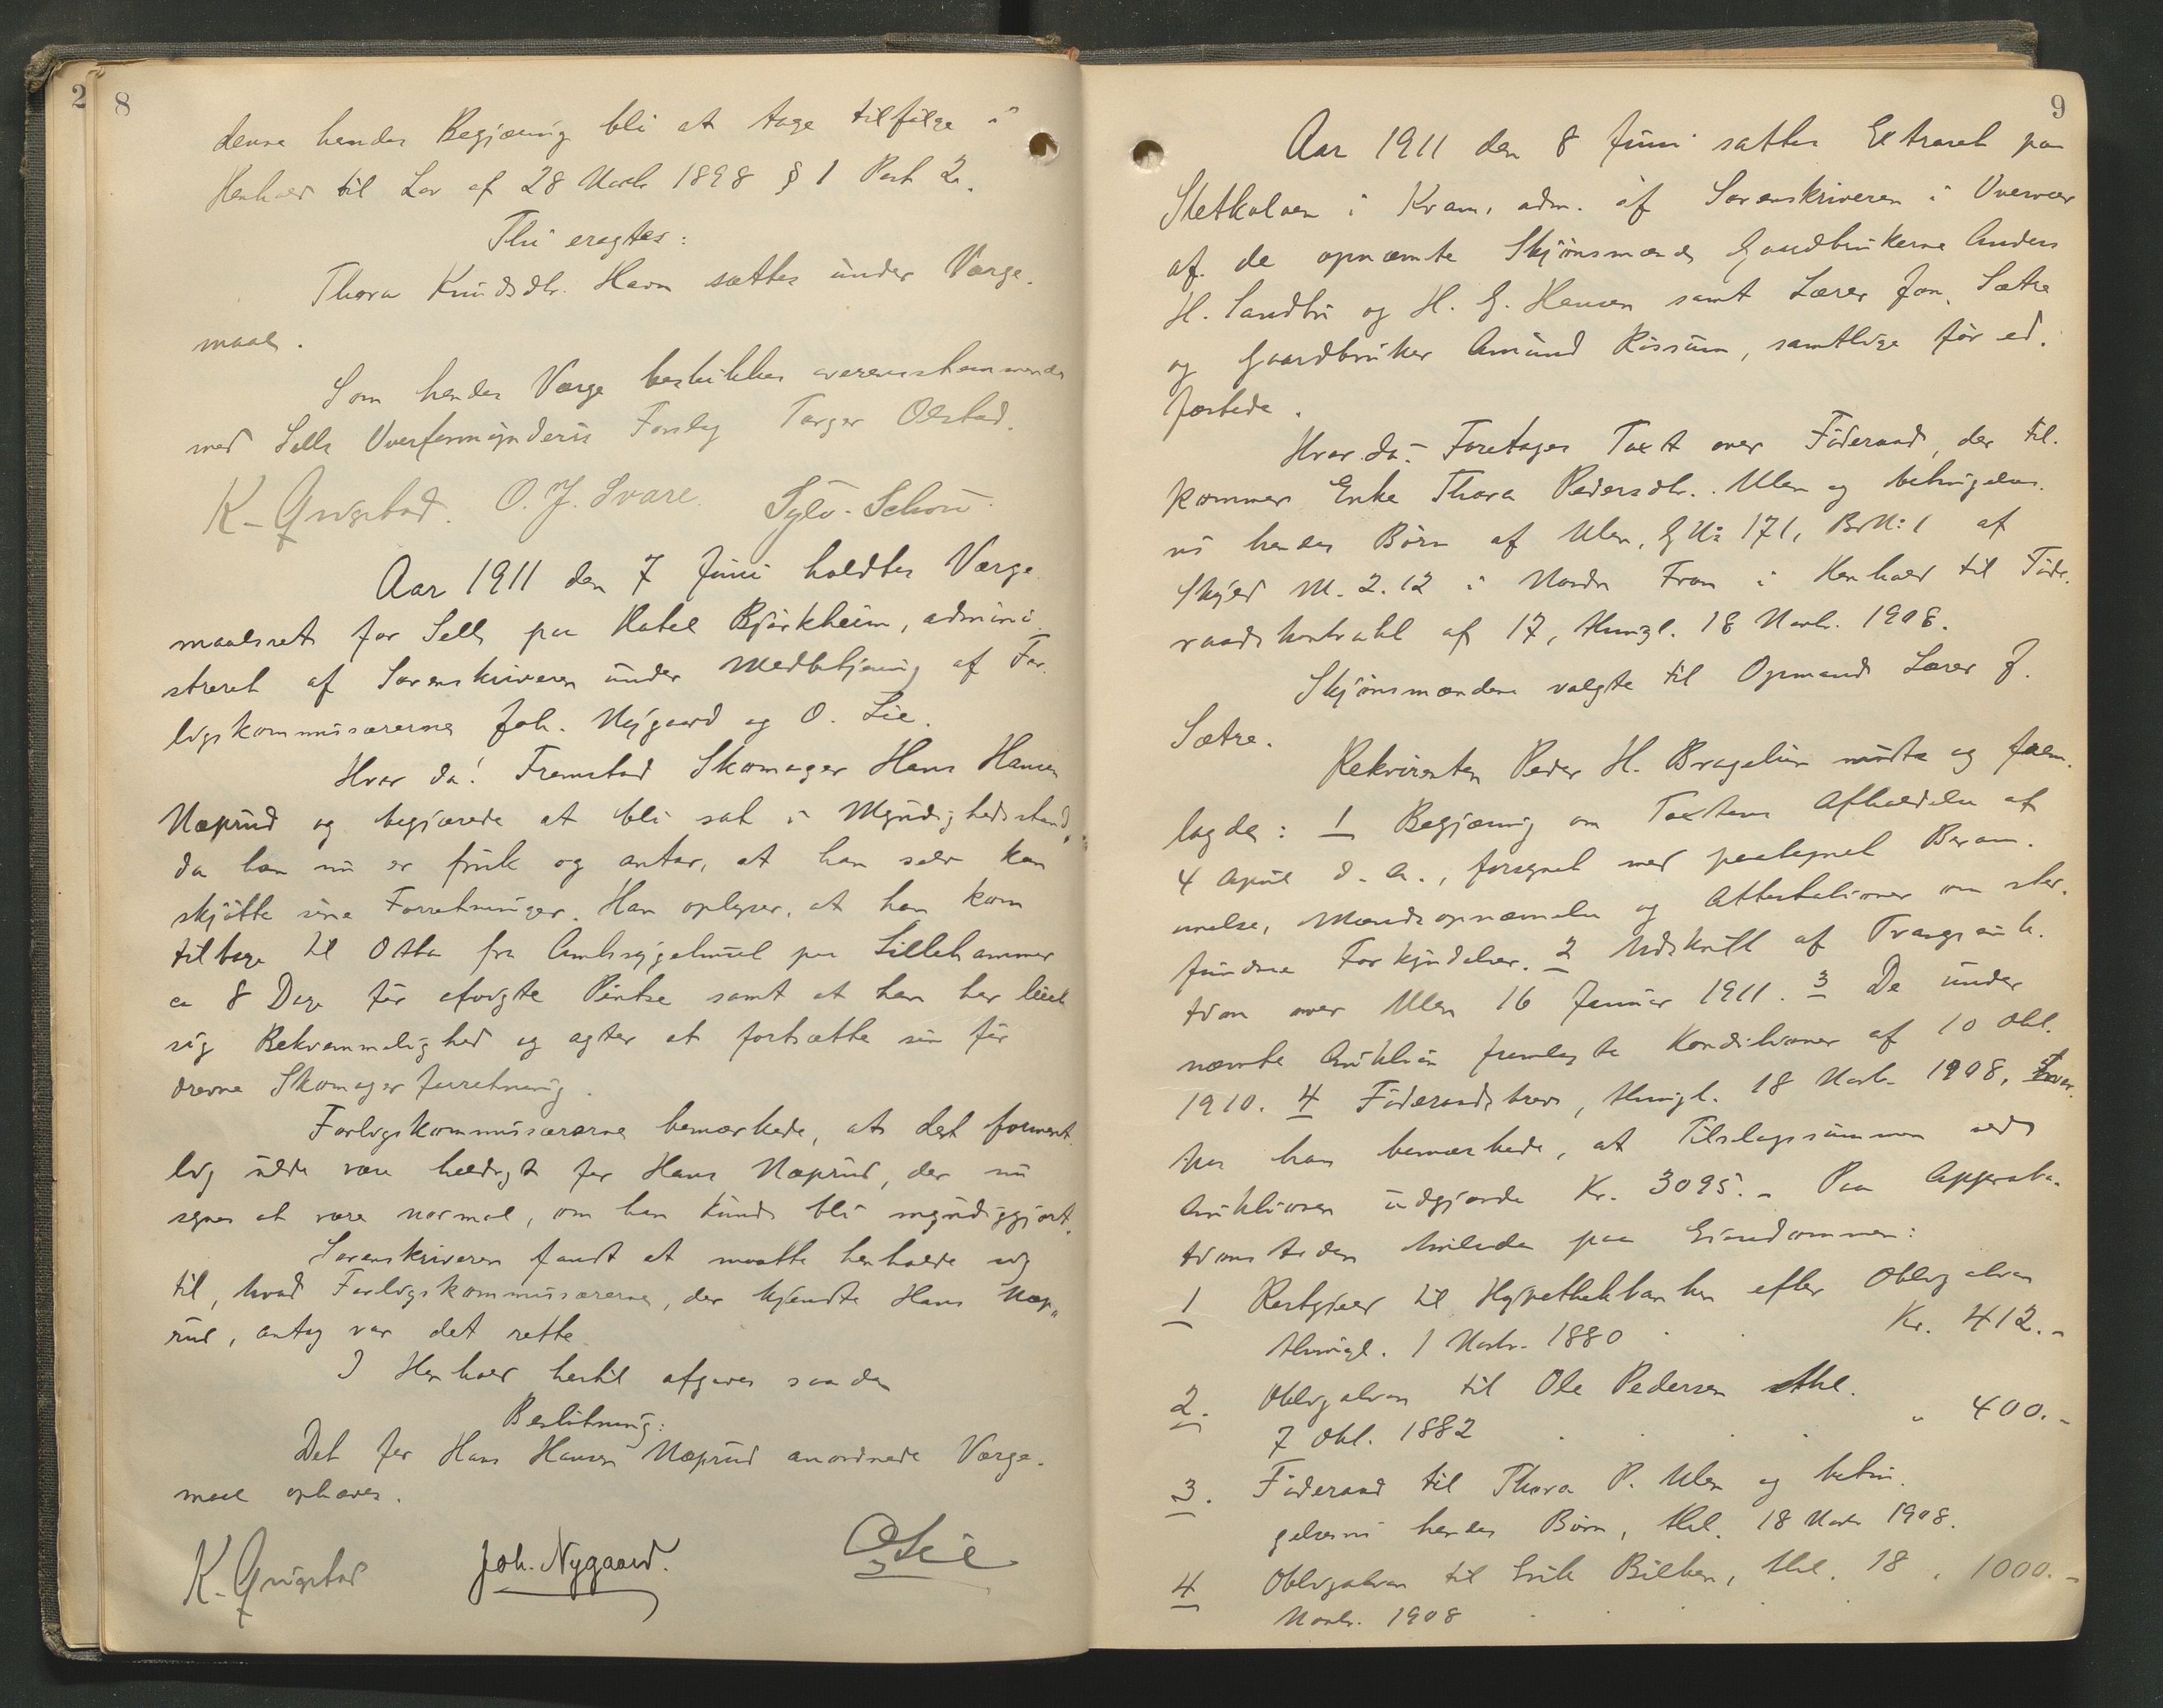 2
8
denne hendes Begjæring bli at tage tilfølge i
Henhold til Lov af 28 Novbr 1898 § 1 Post 2.
Thi eragtes:
Thora Knudsdtr. Havn sættes under Værge-
maal.
Som hendes Værge beskikkes overensstemmende
med Sells Overformynderis Forslag Torger Olstad.
K. O. J. Svare. Sylv. Schou.
Aar 1911 den 7 Juni holdtes Værge
maalsret for Sell paa Hotel Bjørkheim, admini-
streret af Sorenskriveren under Medbetjening af For-
ligskommissærerne Joh. Nygaard og O. Lie.
Hvor da! Fremstod Skomager Hans Hansen
Næprud og begjærede at bli sat i Myndighedsstand,
da han nu er frisk og antar, at han selv kan
skjøtte sine Forretninger. Han oplyser, at han kom
tilbage til Otta fra Amtssygehuset paa Lillehammer
ca 8 Dage før afvigte Pintse samt at han har leiet
sig Bekvemmelighed og agter at fortsætte sin før
drevne Skomagerforretning.
Forligskommissærerne bemærkede, at det forment-
lig vilde være heldigt for Hans Næprud, der nu
synes at være normal, om han kunde bli myndiggjort.
Sorenskriveren fandt at maatte henholde sig
til, hvad Forligskommissærerne, der kjendte Hans Næp„
rud, antog var det rette.
I Henhold hertil afgaves saadan
Beslutning:
Det for Hans Hansen Næprud anordnede Værge-
maal ophæves.
K. Joh. Nygaard. O Lie
9
Aar 1911 den 8 Juni sattes Extraret paa
Sletkolven i Kvam, adm. af Sorenskriveren i Overvær
af de opnævnte Skjønsmænd Gaardbrukerne Anders
H. Sandbu og H. G. Hansen samt Lærer Jon Sætre
og Gaardbruker Amund Rissum, samtlige før ed-
fæstede.
Hvor da: Foretages Taxt over Føderaad, der til-
kommer Enke Thora Pedersdtr. Ulen og betingelses-
vis hendes Børn af Ulen, G.No 171, Br.No 1 af
Skyld M. 2.12 i Nordre Fron i Henhold til Føde-
raadskontrakt af 17, thingl. 18 Novbr. 1908.
Skjønsmændene valgte til Opmand Lærer J.
Sætre.
Rekvirenten Peder H. Bragelien mødte og frem-
lagde: 1 Begjæring om Taxtens Afholdelse af
4 April d. A., forsynet med paategnet Beram-
melse, Mandsopnævnelse og Attestationer om sted-
fundne Forkyndelser. 2 Udskrift af Tvangsauk-
tion over Ulen 16 Januar 1911. 3 De under
nævnte Auktion fremlagte Konditioner af 10 Okt.
1910. 4 Føderaadsbrev, thingl. 18 Novbr 1908,
han bemærkede, at Tilslagssummen ved
Auktionen udgjorde Kr. 3095.- Paa Approba-
tionstiden hvilede paa Eiendommen:
1 Restgjæld til Hypothekbanken efter Obligation
thingl. 1 Novbr. 1880 . . Kr. 412.-
2. Obligation til Ole Pedersen thl.
7 Okt. 1882 . . . " 400.-
3. Føderaad til Thora P. Ulen og betin-
gelsesvis hendes Børn, thl. 18 Novbr 1908.
4 Obligation til Erik Bilben, thl. 18 " 1000.-
Novbr. 1908 . . . .